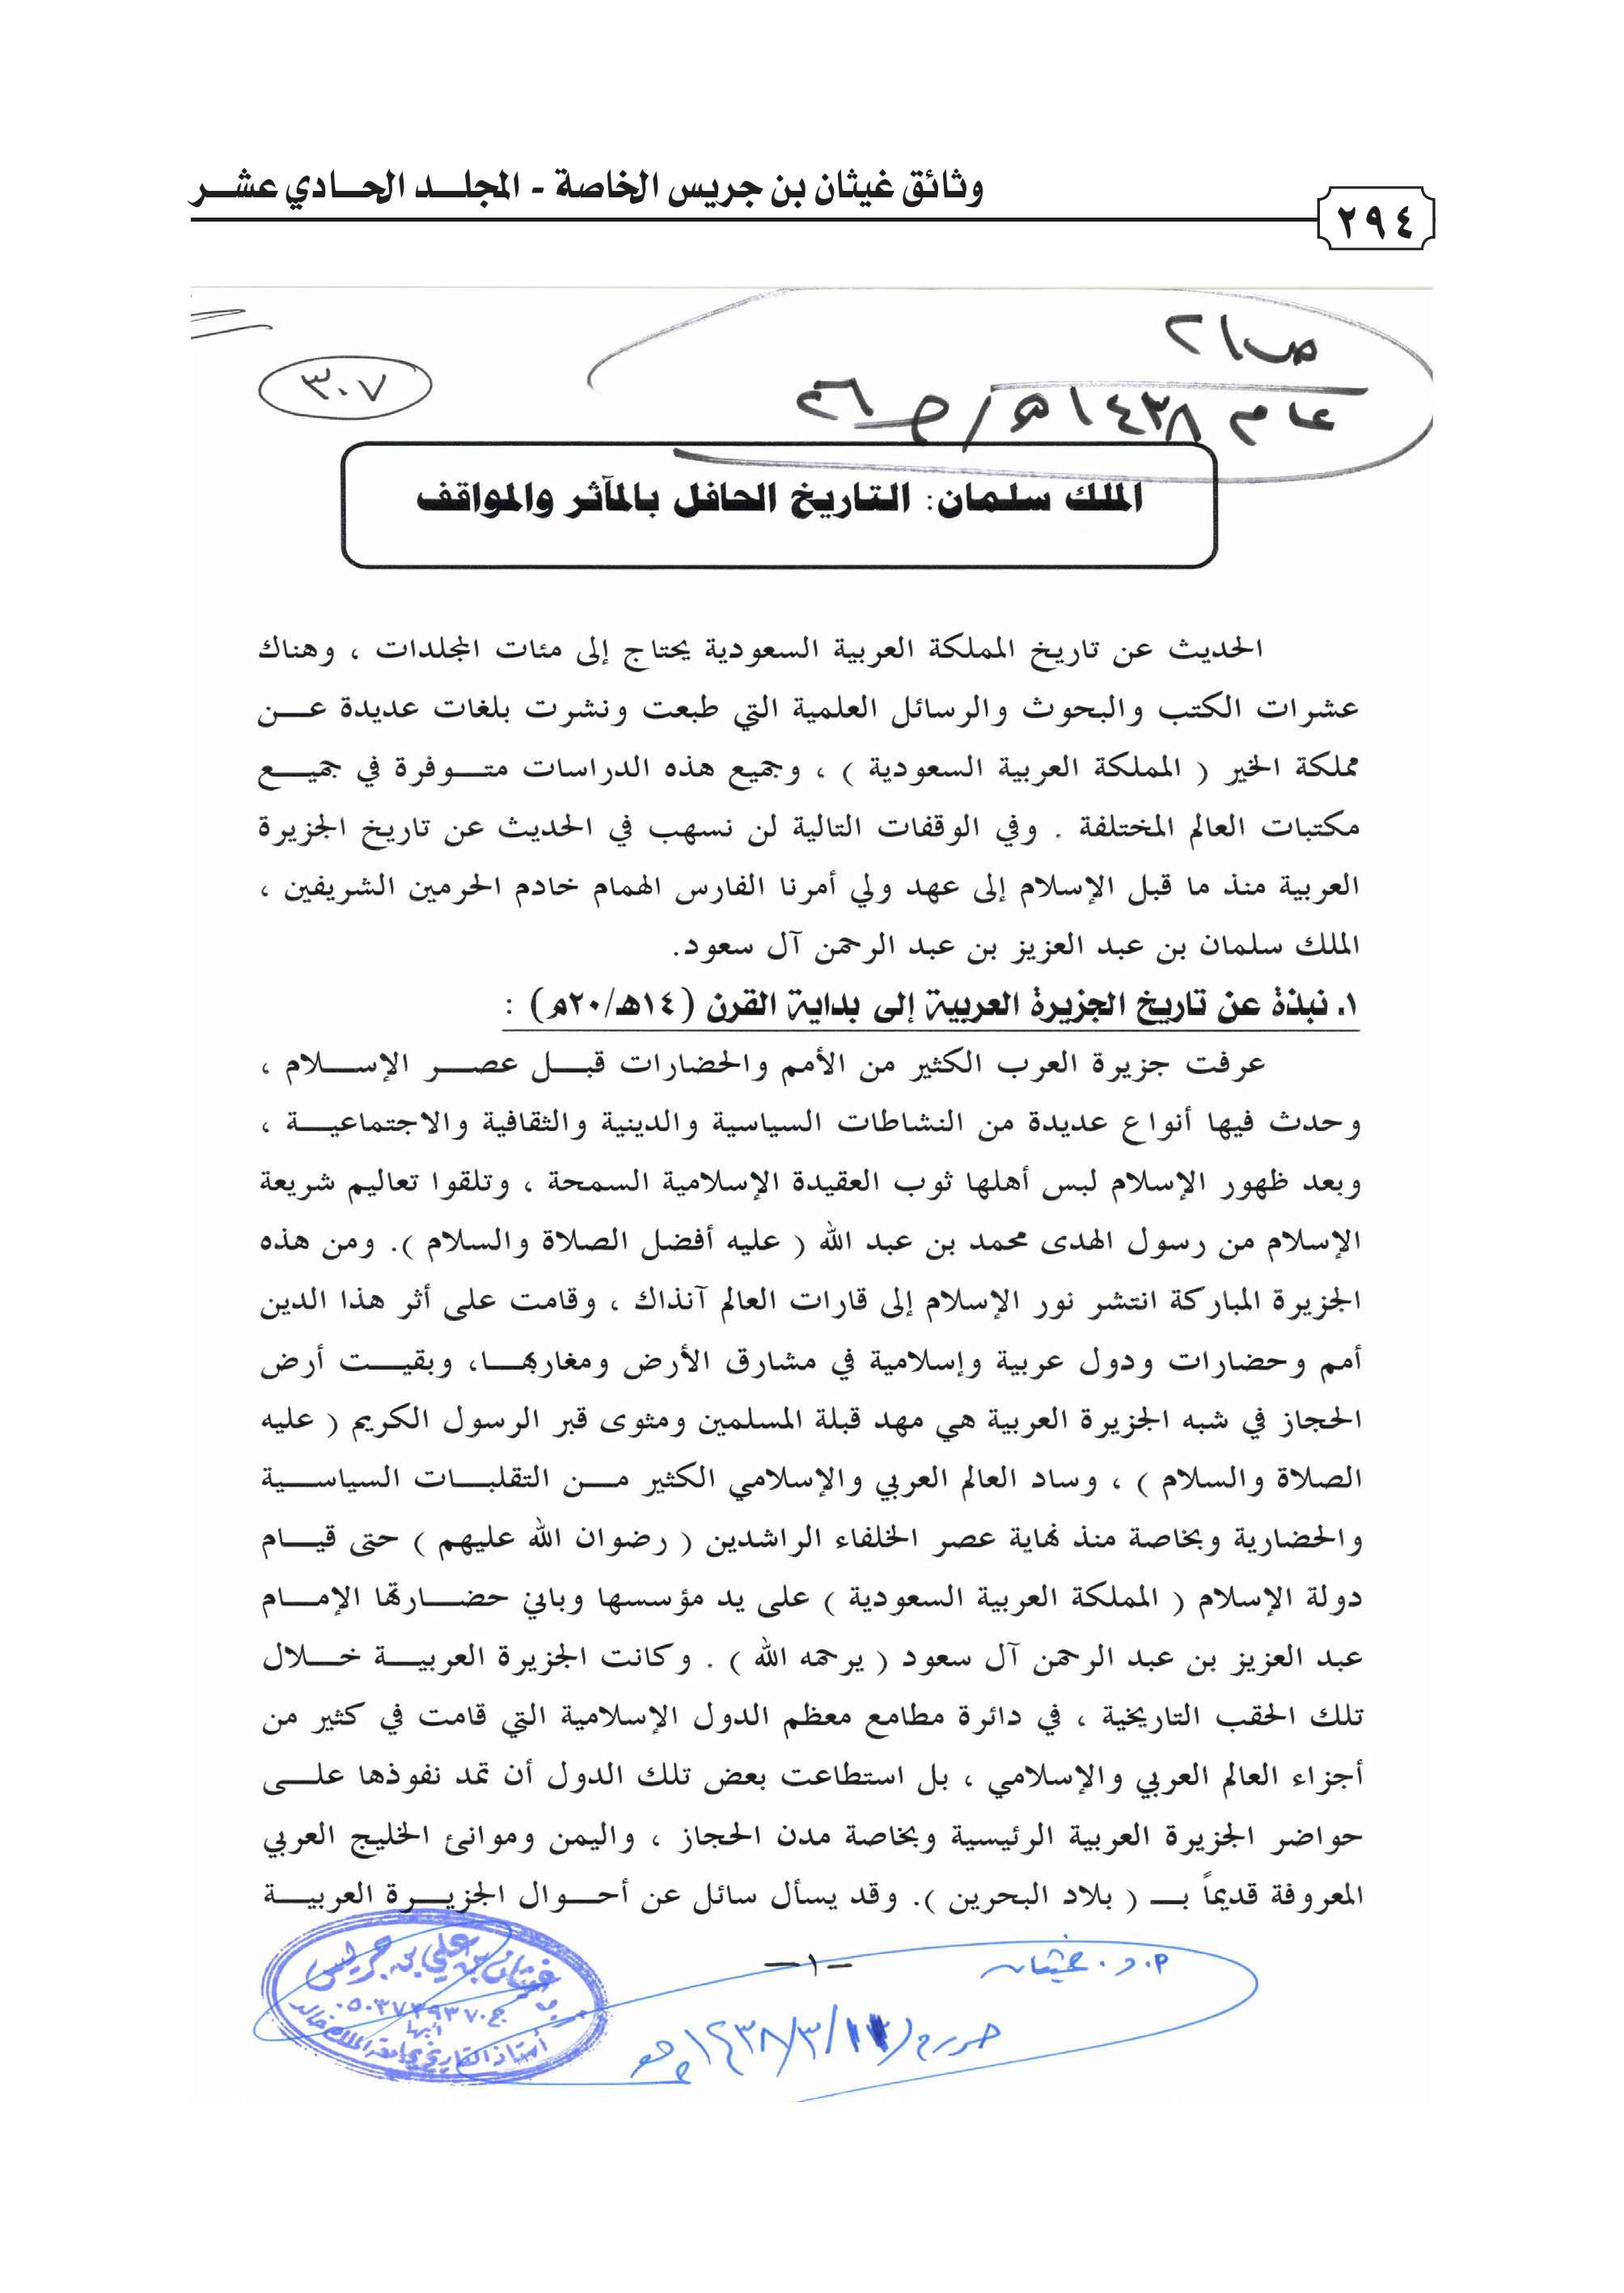 وثائق غيثان بن جريس الخاصة - المجلـــد الحـــادي عشـــر
٢٩٤
ص٢١
عام ١٤٣٨هـ / ص٢٦
٣٠٧
الملك سلمان: التاريخ الحافل بالمآثر والمواقف
الحديث عن تاريخ المملكة العربية السعودية يحتاج إلى مئات المجلدات ، وهناك
عشرات الكتب والبحوث والرسائل العلمية التي طبعت ونشرت بلغات عديدة عـــن
مملكة الخير ( المملكة العربية السعودية ) ، وجميع هذه الدراسات متـــوفرة في جميـــع
مكتبات العالم المختلفة . وفي الوقفات التالية لن نسهب في الحديث عن تاريخ الجزيرة
العربية منذ ما قبل الإسلام إلى عهد ولي أمرنا الفارس الهمام خادم الحرمين الشريفين ،
الملك سلمان بن عبد العزيز بن عبد الرحمن آل سعود.
١. نبذة عن تاريخ الجزيرة العربية إلى بداية القرن (١٤هـ/٢٠م) :
عرفت جزيرة العرب الكثير من الأمم والحضارات قبـــل عصـــر الإســـلام ،
وحدث فيها أنواع عديدة من النشاطات السياسية والدينية والثقافية والاجتماعيـــة ،
وبعد ظهور الإسلام لبس أهلها ثوب العقيدة الإسلامية السمحة ، وتلقوا تعاليم شريعة
الإسلام من رسول الهدى محمد بن عبد الله ( عليه أفضل الصلاة والسلام ). ومن هذه
الجزيرة المباركة انتشر نور الإسلام إلى قارات العالم آنذاك ، وقامت على أثر هذا الدين
أمم وحضارات ودول عربية وإسلامية في مشارق الأرض ومغاربهـــا، وبقيـــت أرض
الحجاز في شبه الجزيرة العربية هي مهد قبلة المسلمين ومثوى قبر الرسول الكريم ( عليه
الصلاة والسلام ) ، وساد العالم العربي والإسلامي الكثير مـــن التقلبـــات السياســـية
والحضارية وبخاصة منذ نهاية عصر الخلفاء الراشدين ( رضوان الله عليهم ) حتى قيـــام
دولة الإسلام ( المملكة العربية السعودية ) على يد مؤسسها وباني حضـــارتها الإمـــام
عبد العزيز بن عبد الرحمن آل سعود ( يرحمه الله ) . وكانت الجزيرة العربيـــة خـــلال
تلك الحقب التاريخية ، في دائرة مطامع معظم الدول الإسلامية التي قامت في كثير من
أجزاء العالم العربي والإسلامي ، بل استطاعت بعض تلك الدول أن تمد نفوذها علـــى
حواضر الجزيرة العربية الرئيسية وبخاصة مدن الحجاز ، واليمن وموانئ الخليج العربي
المعروفة قديماً بـــ ( بلاد البحرين ). وقد يسأل سائل عن أحـــوال الجزيـــرة العربيـــة
أ.د. غيثان
—١—
١٤٣٨/٣/
غيثان بن علي بن جريس
أبها
أستاذ التاريخ بجامعة الملك خالد